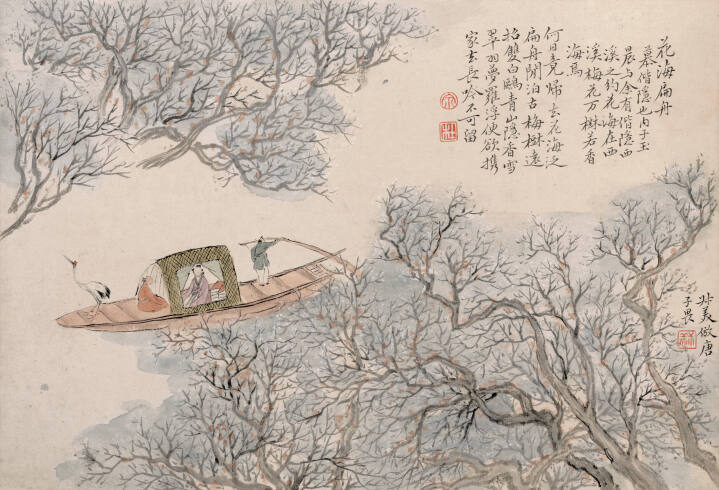 花海扁舟
慕偕隱也內子玉
晨与余有偕隱西
溪之約花海在西
溪梅花万樹若香
海焉
何日竟歸去花海泛
扁舟閒泊古梅樹遠
招雙白鷗青山隱香雪
翠羽夢羅浮便欲携
家去長吟不可留
叔美倣唐
子畏